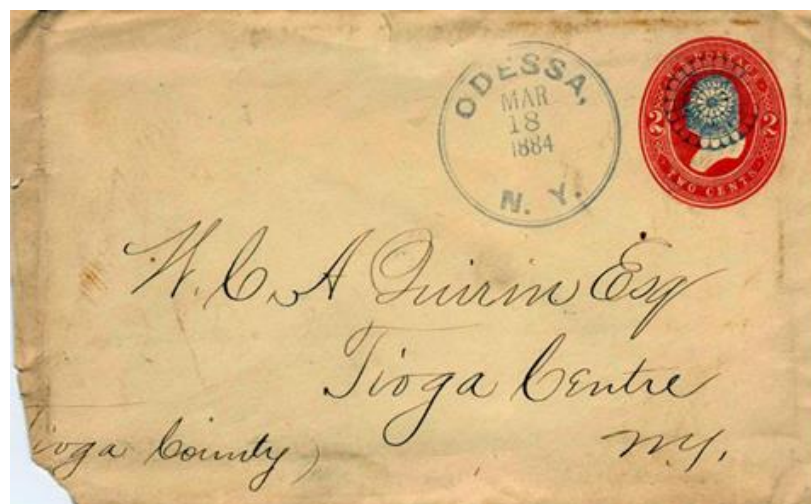 ODESSA,
MAR
18
1884
N. Y.
2 2
TWO CENTS
W. C. A Quirin Esq
Tioga Centre
N.Y.
Tioga County)